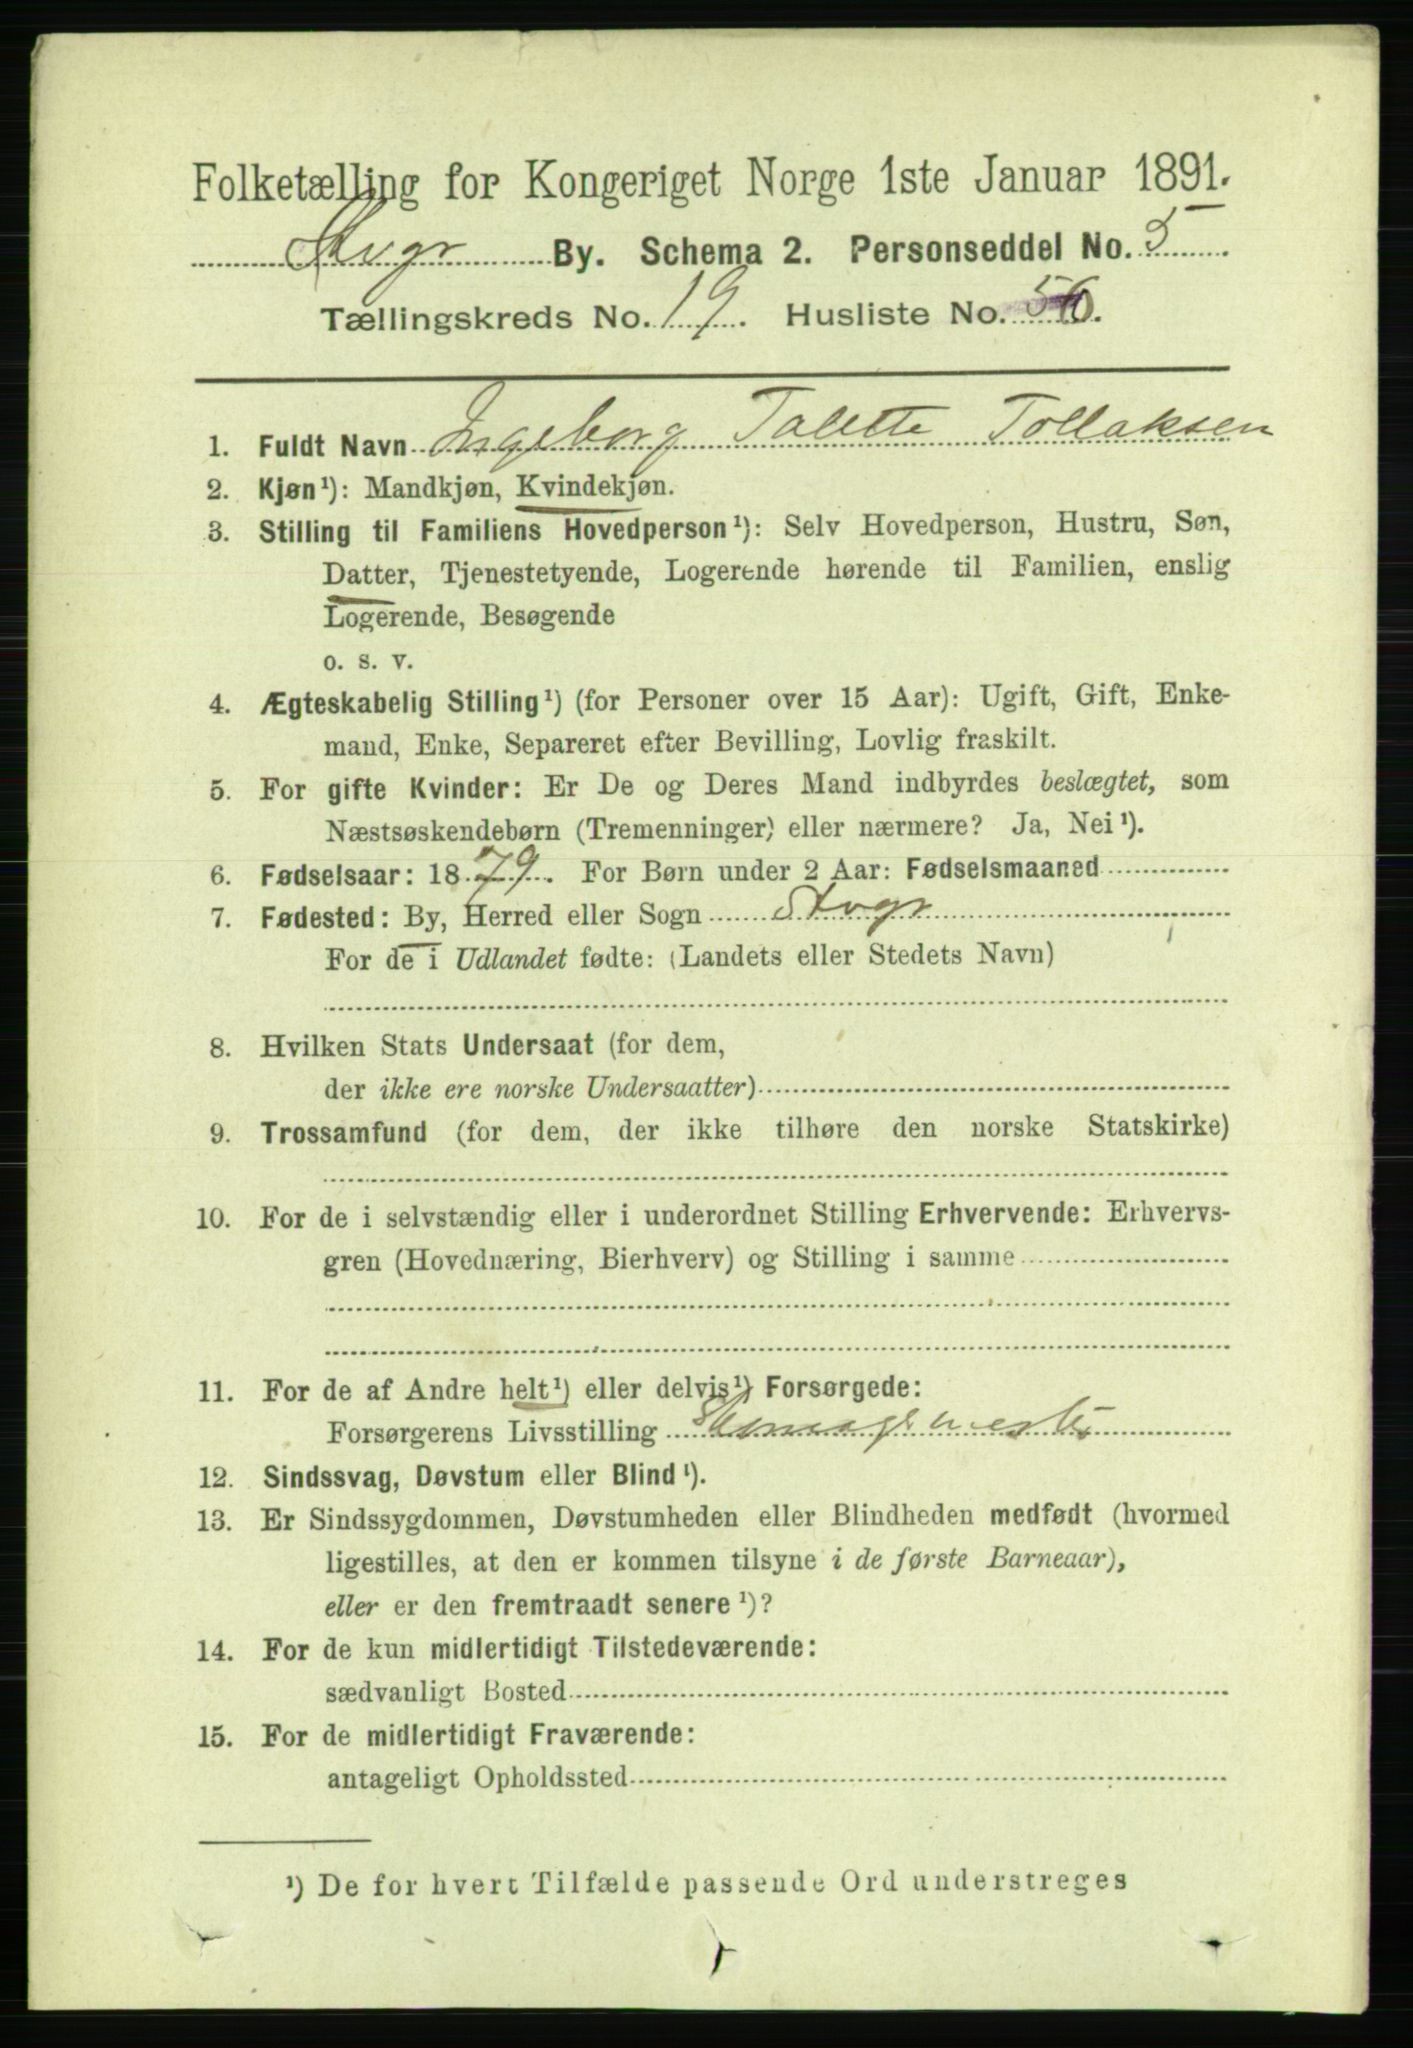 Folketælling for Kongeriget Norge 1ste Januar 1891.
Stvgr By. Schema 2. Personseddel No. 5
Tællingskreds No. 19. Husliste No. 56.
1. Fuldt Navn Ingeborg Talette Tollaksen
2. Kjøn¹): Mandkjøn, Kvindekjøn.
3. Stilling til Familiens Hovedperson¹): Selv Hovedperson, Hustru, Søn,
Datter, Tjenestetyende, Logerende hørende til Familien, enslig
Logerende, Besøgende
o. s. v.
4. Ægteskabelig Stilling¹) (for Personer over 15 Aar): Ugift, Gift, Enke-
mand, Enke, Separeret efter Bevilling, Lovlig fraskilt.
5. For gifte Kvinder: Er De og Deres Mand indbyrdes beslægtet, som
Næstsøskendebørn (Tremenninger) eller nærmere? Ja, Nei¹).
6. Fødselsaar: 1879. For Børn under 2 Aar: Fødselsmaaned
7. Fødested: By, Herred eller Sogn Stvgr
For de i Udlandet fødte: (Landets eller Stedets Navn)
8. Hvilken Stats Undersaat (for dem,
der ikke ere norske Undersaatter)
9. Trossamfund (for dem, der ikke tilhøre den norske Statskirke)
10. For de i selvstændig eller i underordnet Stilling Erhvervende: Erhvervs-
gren (Hovednæring, Bierhverv) og Stilling i samme
11. For de af Andre helt¹) eller delvis¹) Forsørgede:
Forsørgerens Livsstilling
12. Sindssvag, Døvstum eller Blind¹).
13. Er Sindssygdommen, Døvstumheden eller Blindheden medfødt (hvormed
ligestilles, at den er kommen tilsyne i de første Barneaar),
eller er den fremtraadt senere¹)?
14. For de kun midlertidigt Tilstedeværende:
sædvanligt Bosted
15. For de midlertidigt Fraværende:
antageligt Opholdssted
¹) De for hvert Tilfælde passende Ord understreges